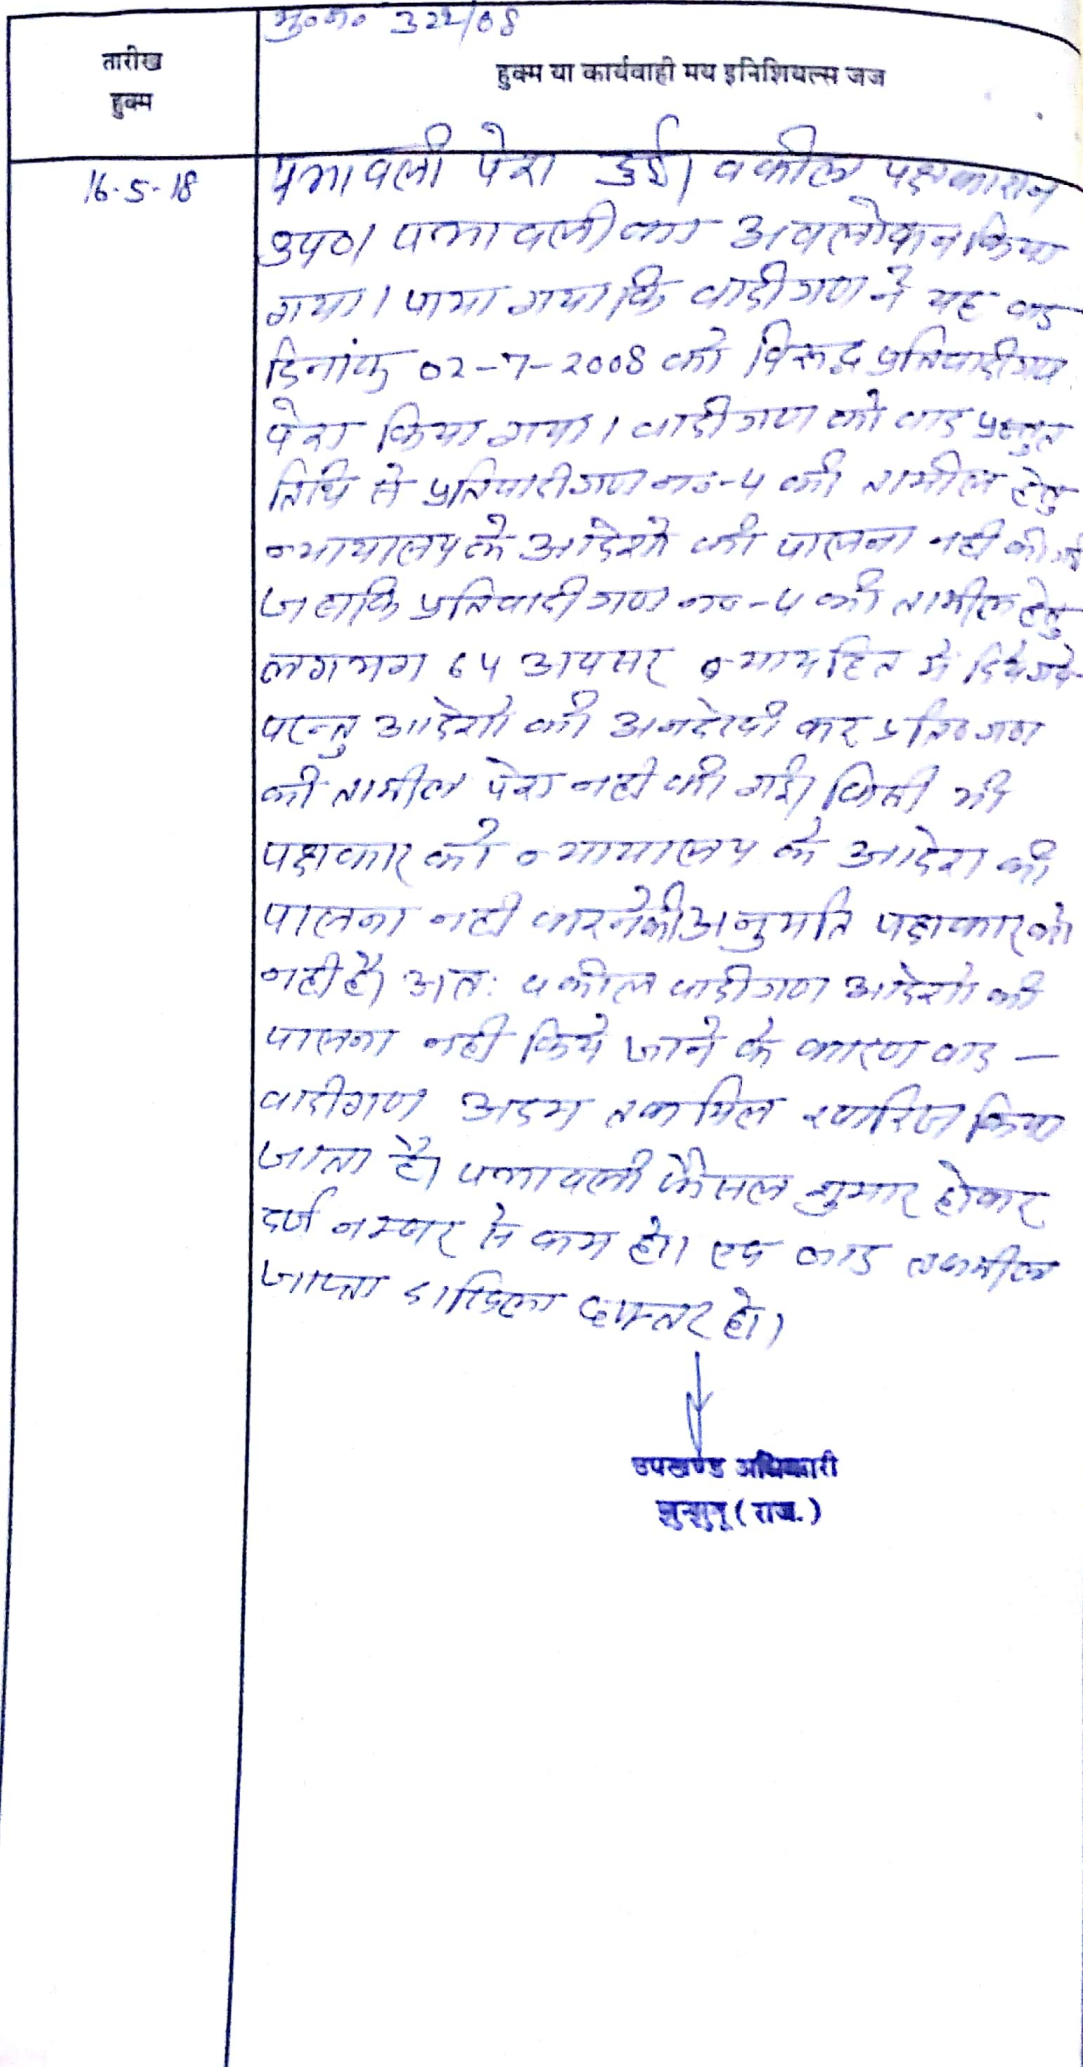 मु०न० 322/08
तारीख
हुक्म
हुक्म या कार्यवाही मय इनिशियल्स जज
16-5-18
पत्रावली पेश हुई। वकील पक्षकारान
उप०। पत्रावली का अवलोकन किया
गया। पाया गया कि वादीगण ने यह वाद
दिनांक 02-7-2008 को विरूद्ध प्रतिवादीगण
पेश किया गया। वादीगण को वाद प्रस्तुत
तिथि से प्रतिवादीगण न०-4 की तामील हेतु
न्यायालय के आदेशो की पालना नही की गई
जबकि प्रतिवादीगण न०-4 की तामील हेतु
लगभग 64 अवसर न्यायहित मे दिये गये
परन्तु आदेशो की अनदेखी कर प्रति० गण
की तामील पेश नही की गई। किसी भी
पक्षकार को न्यायालय के आदेश की
पालना नही करने की अनुमति पक्षकार को
नही है। अतः वकील वादीगण आदेशो की
पालना नही किये जाने के कारण वाद –
वादीगण अदम तकमिल खारिज किया
जाता है। पत्रावली फैसल शुमार होकर
दर्ज नम्बर से कम हो। एवं बाद तकमील
जाप्ता दाखिल दफ्तर हो।
उपखण्ड अधिकारी
झुन्झुनू (राज.)